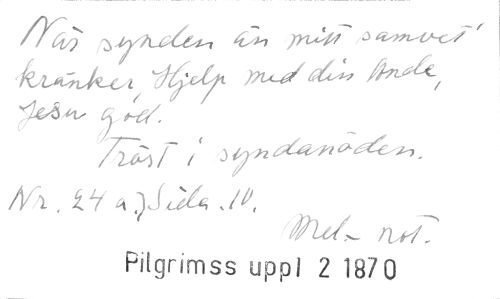 När synden än mitt samvet'
kränker, Hjelp med din Ande,
Jesu god.
Tröst i syndanöden.
Nr. 24 a.) Sida. 10.
Mel.- not.
Pilgrimss uppl 2 1870